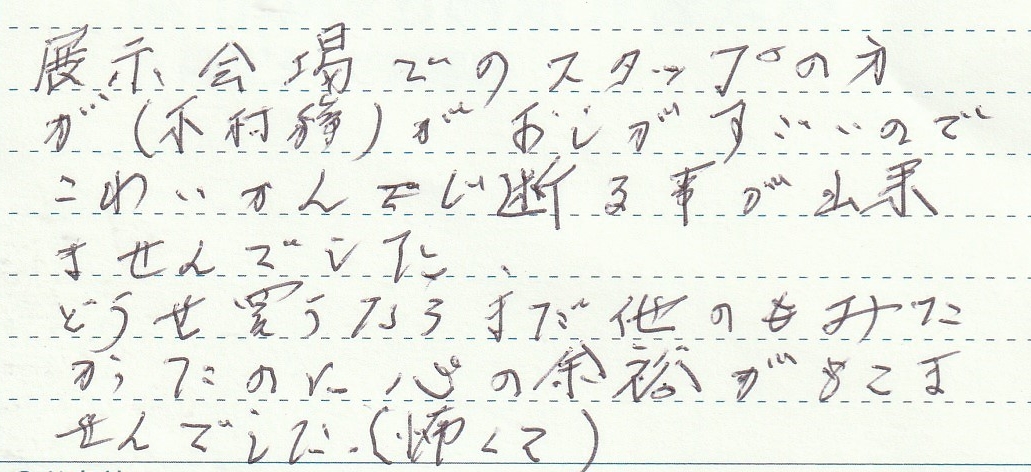 展示会場でのスタップの方
が(木村舞)がおしがすごいので
こわいかんでじ断る事が出来
ませんでした、
どうせ買うならまだ他のもみた
かったのに心の余裕がもてま
せんでした.(怖くて)